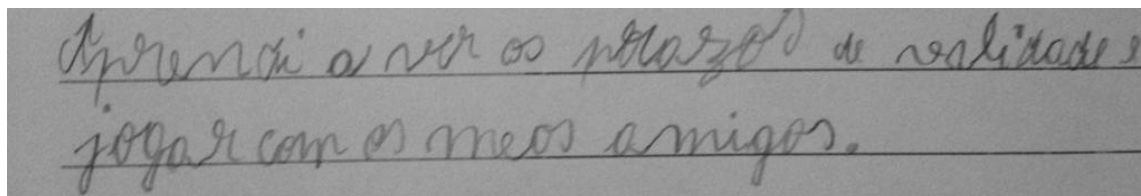 Aprendi a ver os prazos de validade e
jogar com os meos amigos.